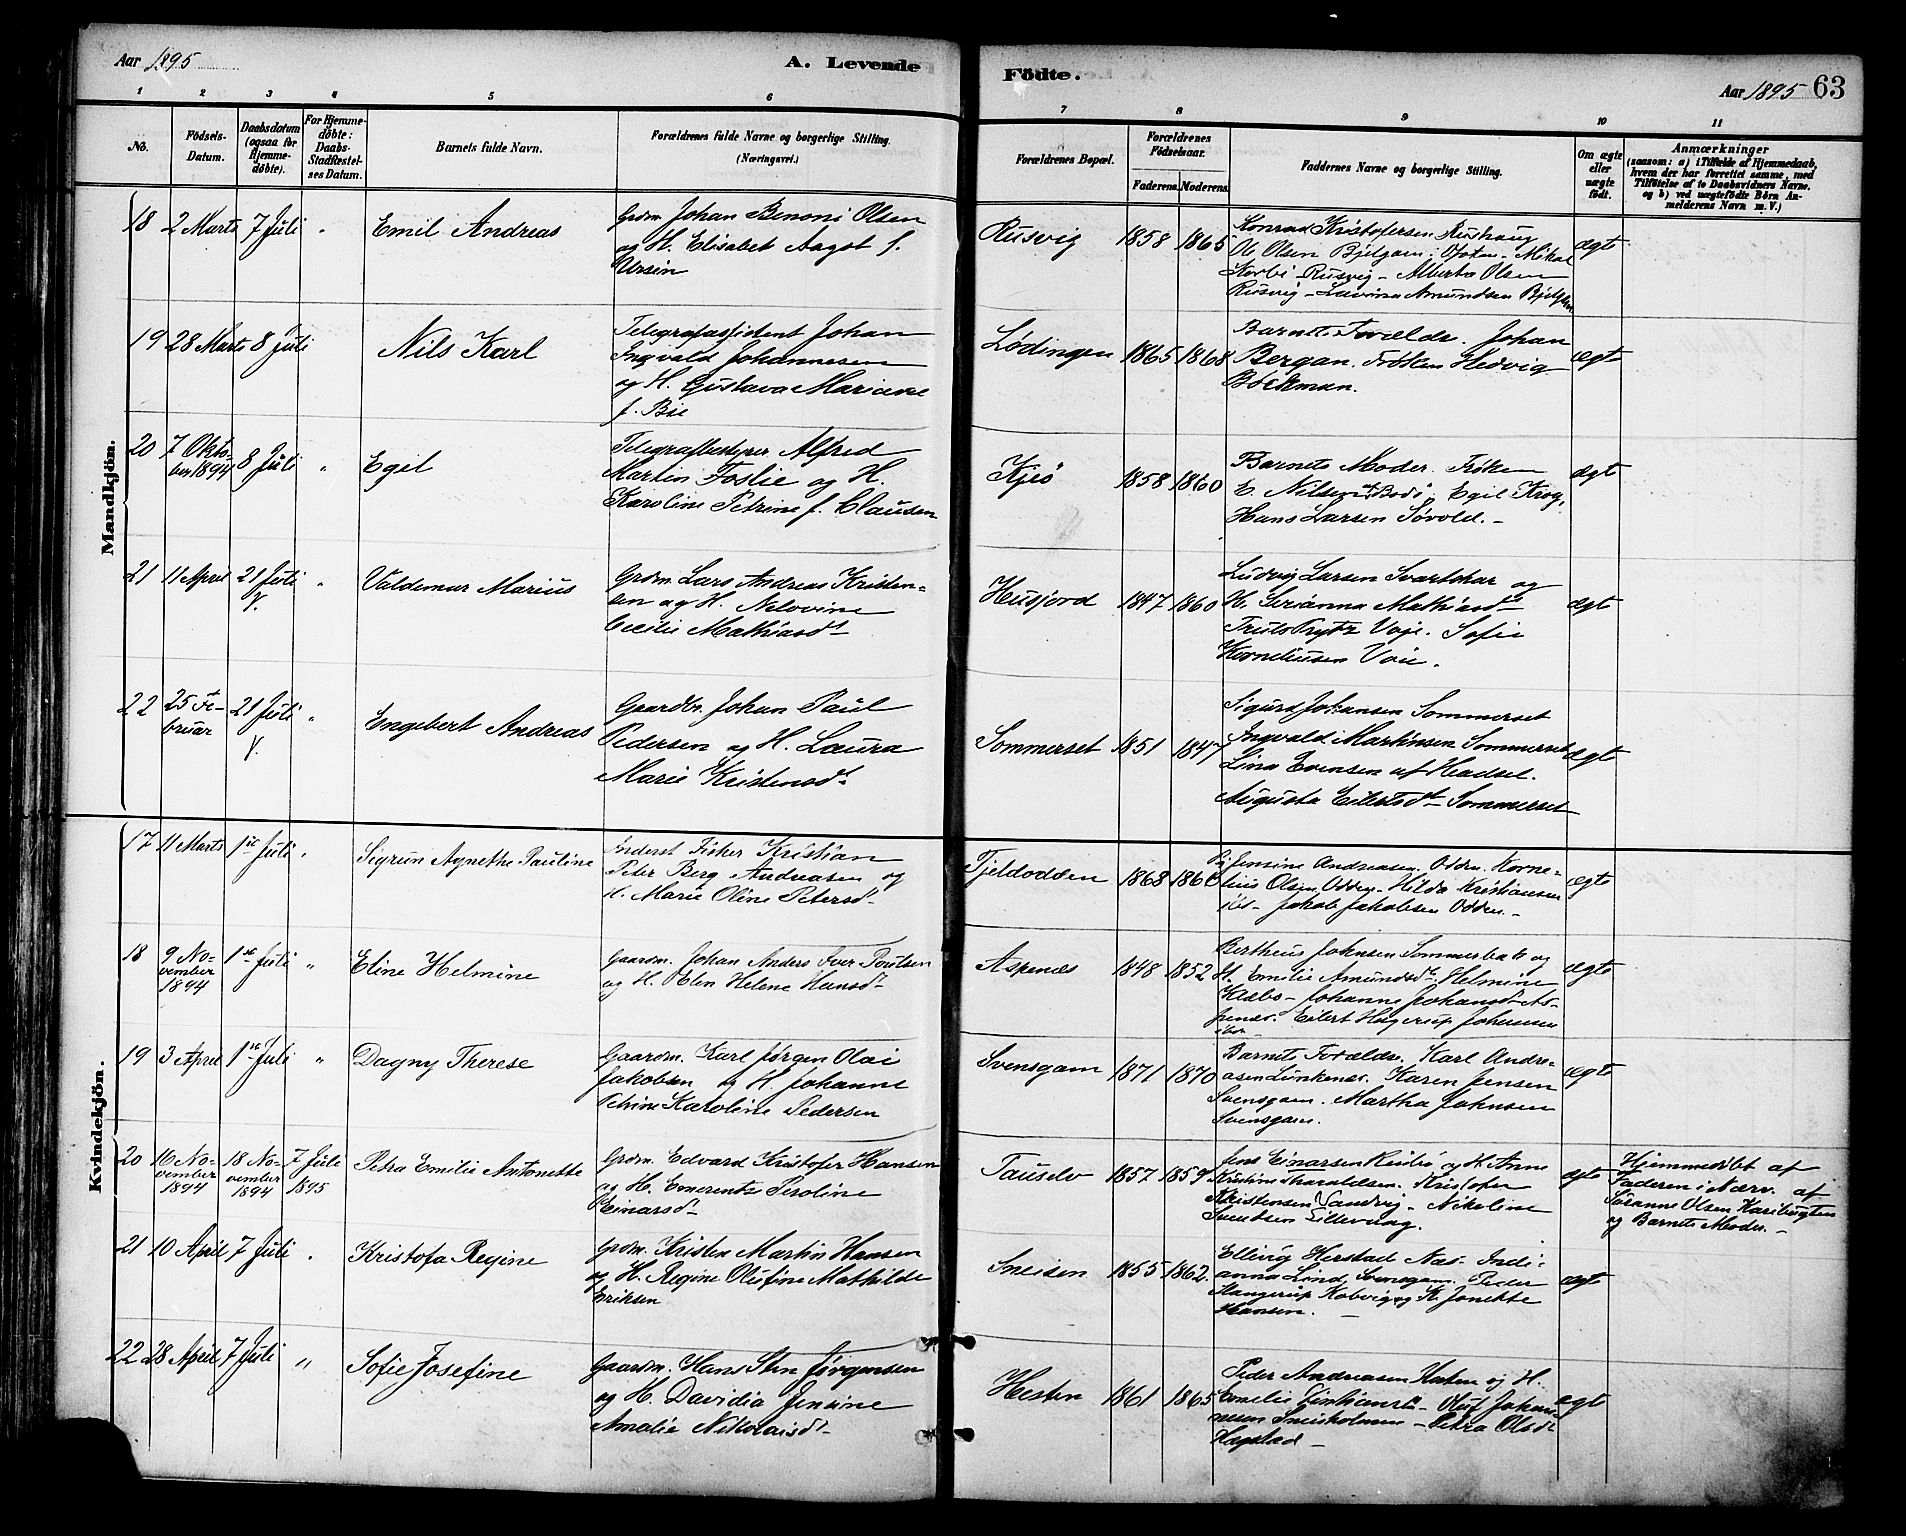 Aar 1895
A. Levende
Födte.
Aar 1895 63
1 2 3 4 5 6 7 8 9 10 11
No.
Födsels-
Datum.
Daabsdatum
(ogsaa for
Hjemme-
döbte).
For Hjemme-
döbte:
Daabs-
Stadfæstel-
ses Datum.
Barnets fulde Navn.
Forældrenes fulde Navne og borgerlige Stilling.
(Næringsvei.)
Forældrenes Bopæl.
Forældrenes
Födselsaar.
Faderens. Moderens.
Faddernes Navne og borgerlige Stilling.
Om ægte
eller
uægte
födt.
Anmærkninger
(saasom: a) i Tilfælde af Hjemmedaab,
hvem der har forrettet samme, med
Tilföielse af to Daabsvidners Navne,
og b) ved uægtefödte Börn An-
melderens Navn m. V.)
Mandkjön.
18 2 Marts 7 Juli " Emil Andreas
Grdm. Johan Benoni Olsen
og H. Elisabet Aagot f.
Ursin
Rusvig 1858 1865
Konrad Kristofersen
Ole Olsen Bjelgam. Ofoten. Mikal
Korbi Rusvig - Alberta Olsen
Rusvig - Lavina Amundsen
ægte
19 28 Marts 8 Juli Nils Karl
Telegrafassistent Johan
Ingvald Johannesen
og H. Gustava Mariane
f. Bie
Lødingen 1865 1868
Barnets Forældr. Johan
Bergan. Frøken Hedvig
Böckman.
ægte
20 7 Okto-
ber 1894 8 Juli " Egil
Telegrafbestyrer Alfred
Martin Foslie og H.
Karoline Petrine f. Clausen
Kjeø 1858 1860
Barnets Moder. Frøken
E. Nilsen af Bodø. Egil Krog,
Hans Larsen Søvold. -
ægte
21 11 April 21 Juli
V. " Valdemar Marius
Grdm. Lars Andreas Kristen-
sen og H. Nilovine
Cecilie Mathiasdt
Husjord 1847 1860
Ludvig Larsen Svartskar og
H. Serianna Mathiasdt
Truls Prytz Voje. Sofie
Korneliussen Voie.
ægte
22 25 Fe-
bruar 21 Juli
V. " Engebert Andreas
Gaardbr. Johan Paul
Pedersen og H. Laura
Marie Kristensdt
Sommerset 1851 1847
Sigurd Johansen Sommerset
Ingvald Martinsen Sommerset
Lina Evensen af Hadsel.
Augusta Eilertsdt Sommerset
ægte
Kvindekjön.
17 11 Marts 1ste Juli " Sigrun Agnethe Pauline
Inderst Fisker Kristian
Peter Berg Andreasen og
H. Marie Oline Petersdt
Tjeldodden 1868
Jensine Andreasen Odden. Korne-
lius Olsen Odden - Hilda Kristiansen
ibd - Jakob Jakobsen Odden. -
ægte
18 9 No-
vember
1894 1ste Juli " Eline Helmine
Gaardm. Johan Anders Iver Poulsen
og H. Elen Helene Hansdt
Aspenæs 1848 1852
Bertheus Johnsen Sommerbak og
H. Emilie Amundsdt. Helmine
Kræbo - Johanne Johansdt As-
penæs. Eilert Hagerup Johnsen
ibd
ægte
19 3 April 1ste Juli " Dagny Therese
Gaardm. Karl Jørgen Olai
Jakobsen og H. Johanne
Petrine Karoline Pedersen
Svensgam 1871 1870
Barnets Forældr. Karl Andre-
asen Lunkenes. Karen Jensen
Svensgam. Martha Johnsen
Svensgam.
ægte
20 16 No-
vember
1894 18 No-
vember
1894 7 Juli
1895 Petra Emilie Antonette
Grdm. Edvard Kristofer Hansen
og H. Emerentze Peroline
Einarsdt
Tauselv 1857 1859
Jens Einarsen og H. Anne
Kristine Kristofer
Kristensen Sandvig - Nikoline
Svendsen
ægte
Hjemmedöbt af
Faderen i Nærv. af
Susanne Olsen
og Barnets Moder. -
21 10 April 7 Juli " Kristofa Regine
Grdm. Kristen Martin Hansen
og H. Regine Olufine Mathilde
Eriksen
Sneisen 1855 1862.
Ellevig Herstad Næs. Indi-
anna Lind Svensgam. Peder
Slangerup Kobvig og H. Jonette
Hansen. -
ægte
22 28 April 7 Juli " Sofie Josefine
Gaardm. Hans Sten Jørgensen
og H. Davidia Jensine
Amalie Nikolaisdt
Hesten 1861 1865
Peder Andreasen og H.
Emelie - Oluf Johan-
nesen Sneisholmen - Petra Olsdt
Hagstad -
ægte